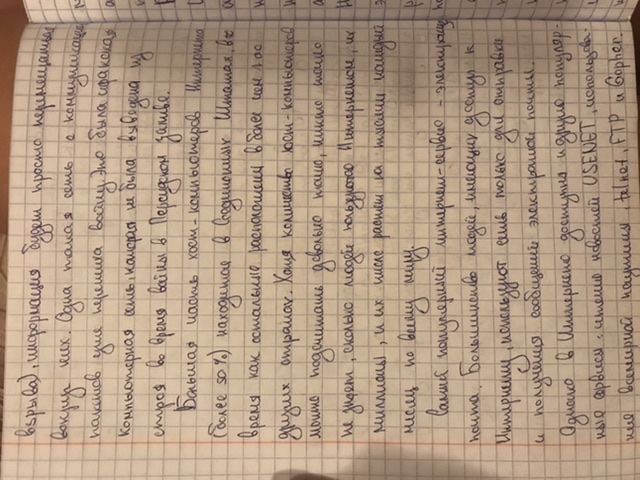 взрыва), информация будет просто перемещаться
вокруг них. Одна такая сеть с коммутацией
пакетов уже пережила войну. Это была иракская
компьютерная сеть, которая не была выведена из
строя во время войны в Персидском заливе.
Большая часть хост-компьютеров Интернета
(более 50%) находится в Соединенных Штатах, в то
время как остальные расположены в более чем 100
других странах. Хотя количество хост-компьютеров
можно подсчитать довольно точно, никто точно
не знает, сколько людей пользуются Интернетом, их
миллионы, и их число растет на тысячи каждый
месяц по всему миру.
Самый популярный интернет-сервис - электронная
почта. Большинство людей, имеющих доступ к
Интернету, используют сеть только для отправки
и получения сообщений электронной почты.
Однако в Интернете доступны и другие популяр-
ные сервисы: чтение новостей USENET, использова-
ние всемирной паутины, telnet, FTP и Gopher.